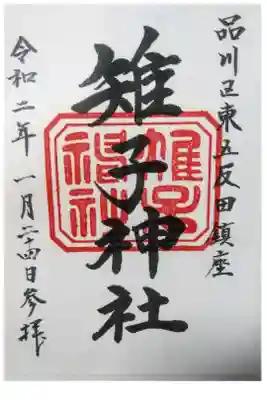 品川区東五反田鎮座
雉子神社
雉子
神社
令和二年一月二十四日参拝